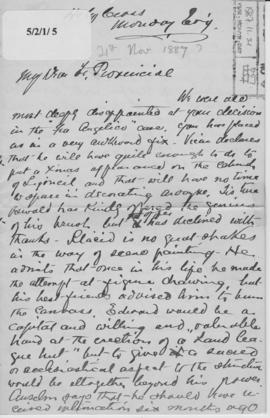 5/2/1/5
Cross
Monday Ev'g
21st Nov 1887?
My Dear Fr Provincial
We were all
most deeply disappointed at your decision
in the Fra Angelico case. You have placed
us in a very awkward fix. Vicar declares
that he will have quite enough to do to
put a Xmas appearance on the
and that will have no time
to spare in decorating anyone. Fr. Luke
has kindly offered the genius
of his brush, but has declined with
thanks. Placid is no great shakes
in the way of scene painting. He
admits that once in his life he made
the attempt at figure drawing, but
his best friends advised him to burn
the canvass. Edward would be a
capital and willing and valuable
hand at the erection of a "land
league hut" but to give a sacred
or ecclesiastical aspect to the structure
would be altogether beyond his power.
Anselm says that he should have re
ceived intimation six months ago